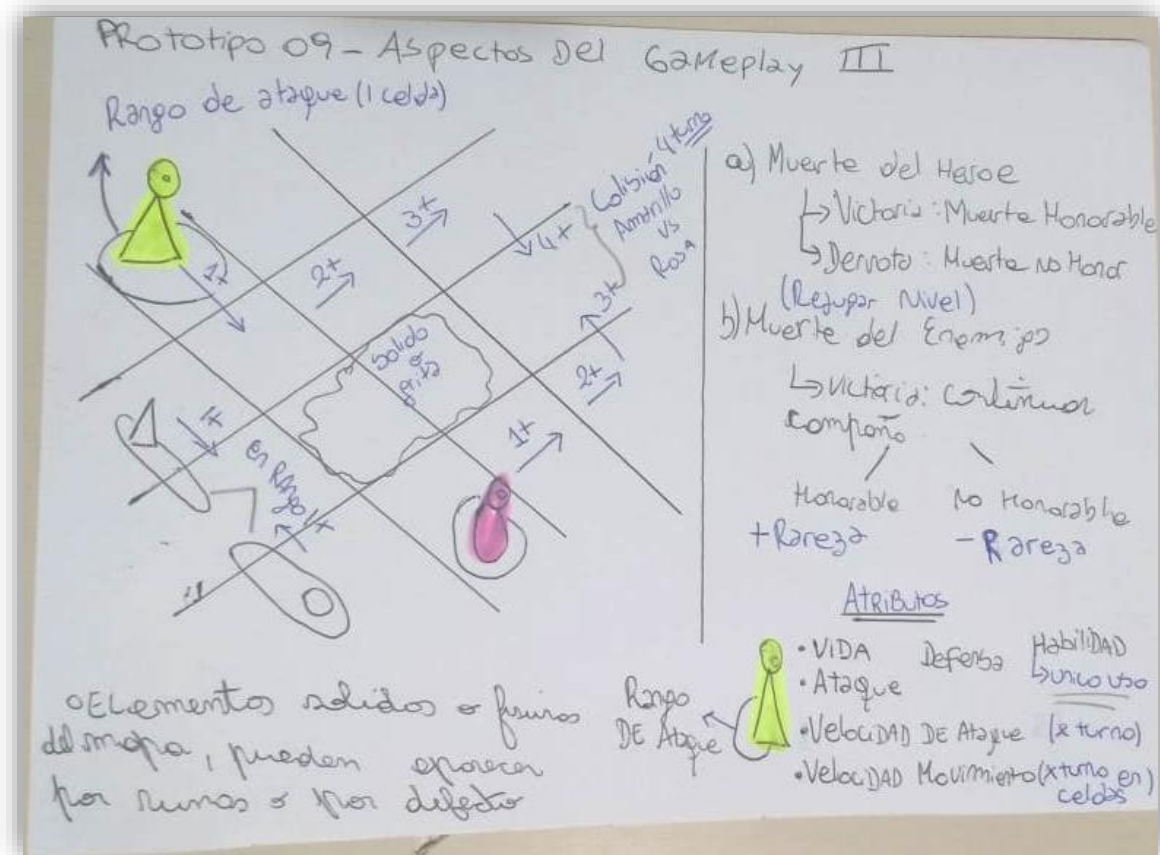 Prototipo 09 - Aspectos Del Gameplay III
Rango de ataque (1 celda)
1t
2t
3t
4t
Colisión 4turno
Amarillo
vs
Rosa
3t
2t
1t
Solido
o
1t
en Rango 1t
a) Muerte del Heroe
↳ Victoria: Muerte Honorable
↳ Derrota: Muerte No Honor
(Rejugar Nivel)
b) Muerte del Enemigo
↳ Victoria: Continuar
Campaña
Honorable No Honorable
+Rareza -Rareza
ATRIBUTOS
• VIDA Defensa Habilidad
• Ataque ↳ unico uso
• Velocidad De Ataque (x turno)
• Velocidad Movimiento (x turno en)
celdas
Rango
DE Ataque
○ Elementos solidos o fisuras
del mapa, pueden aparecer
por runas o por defecto